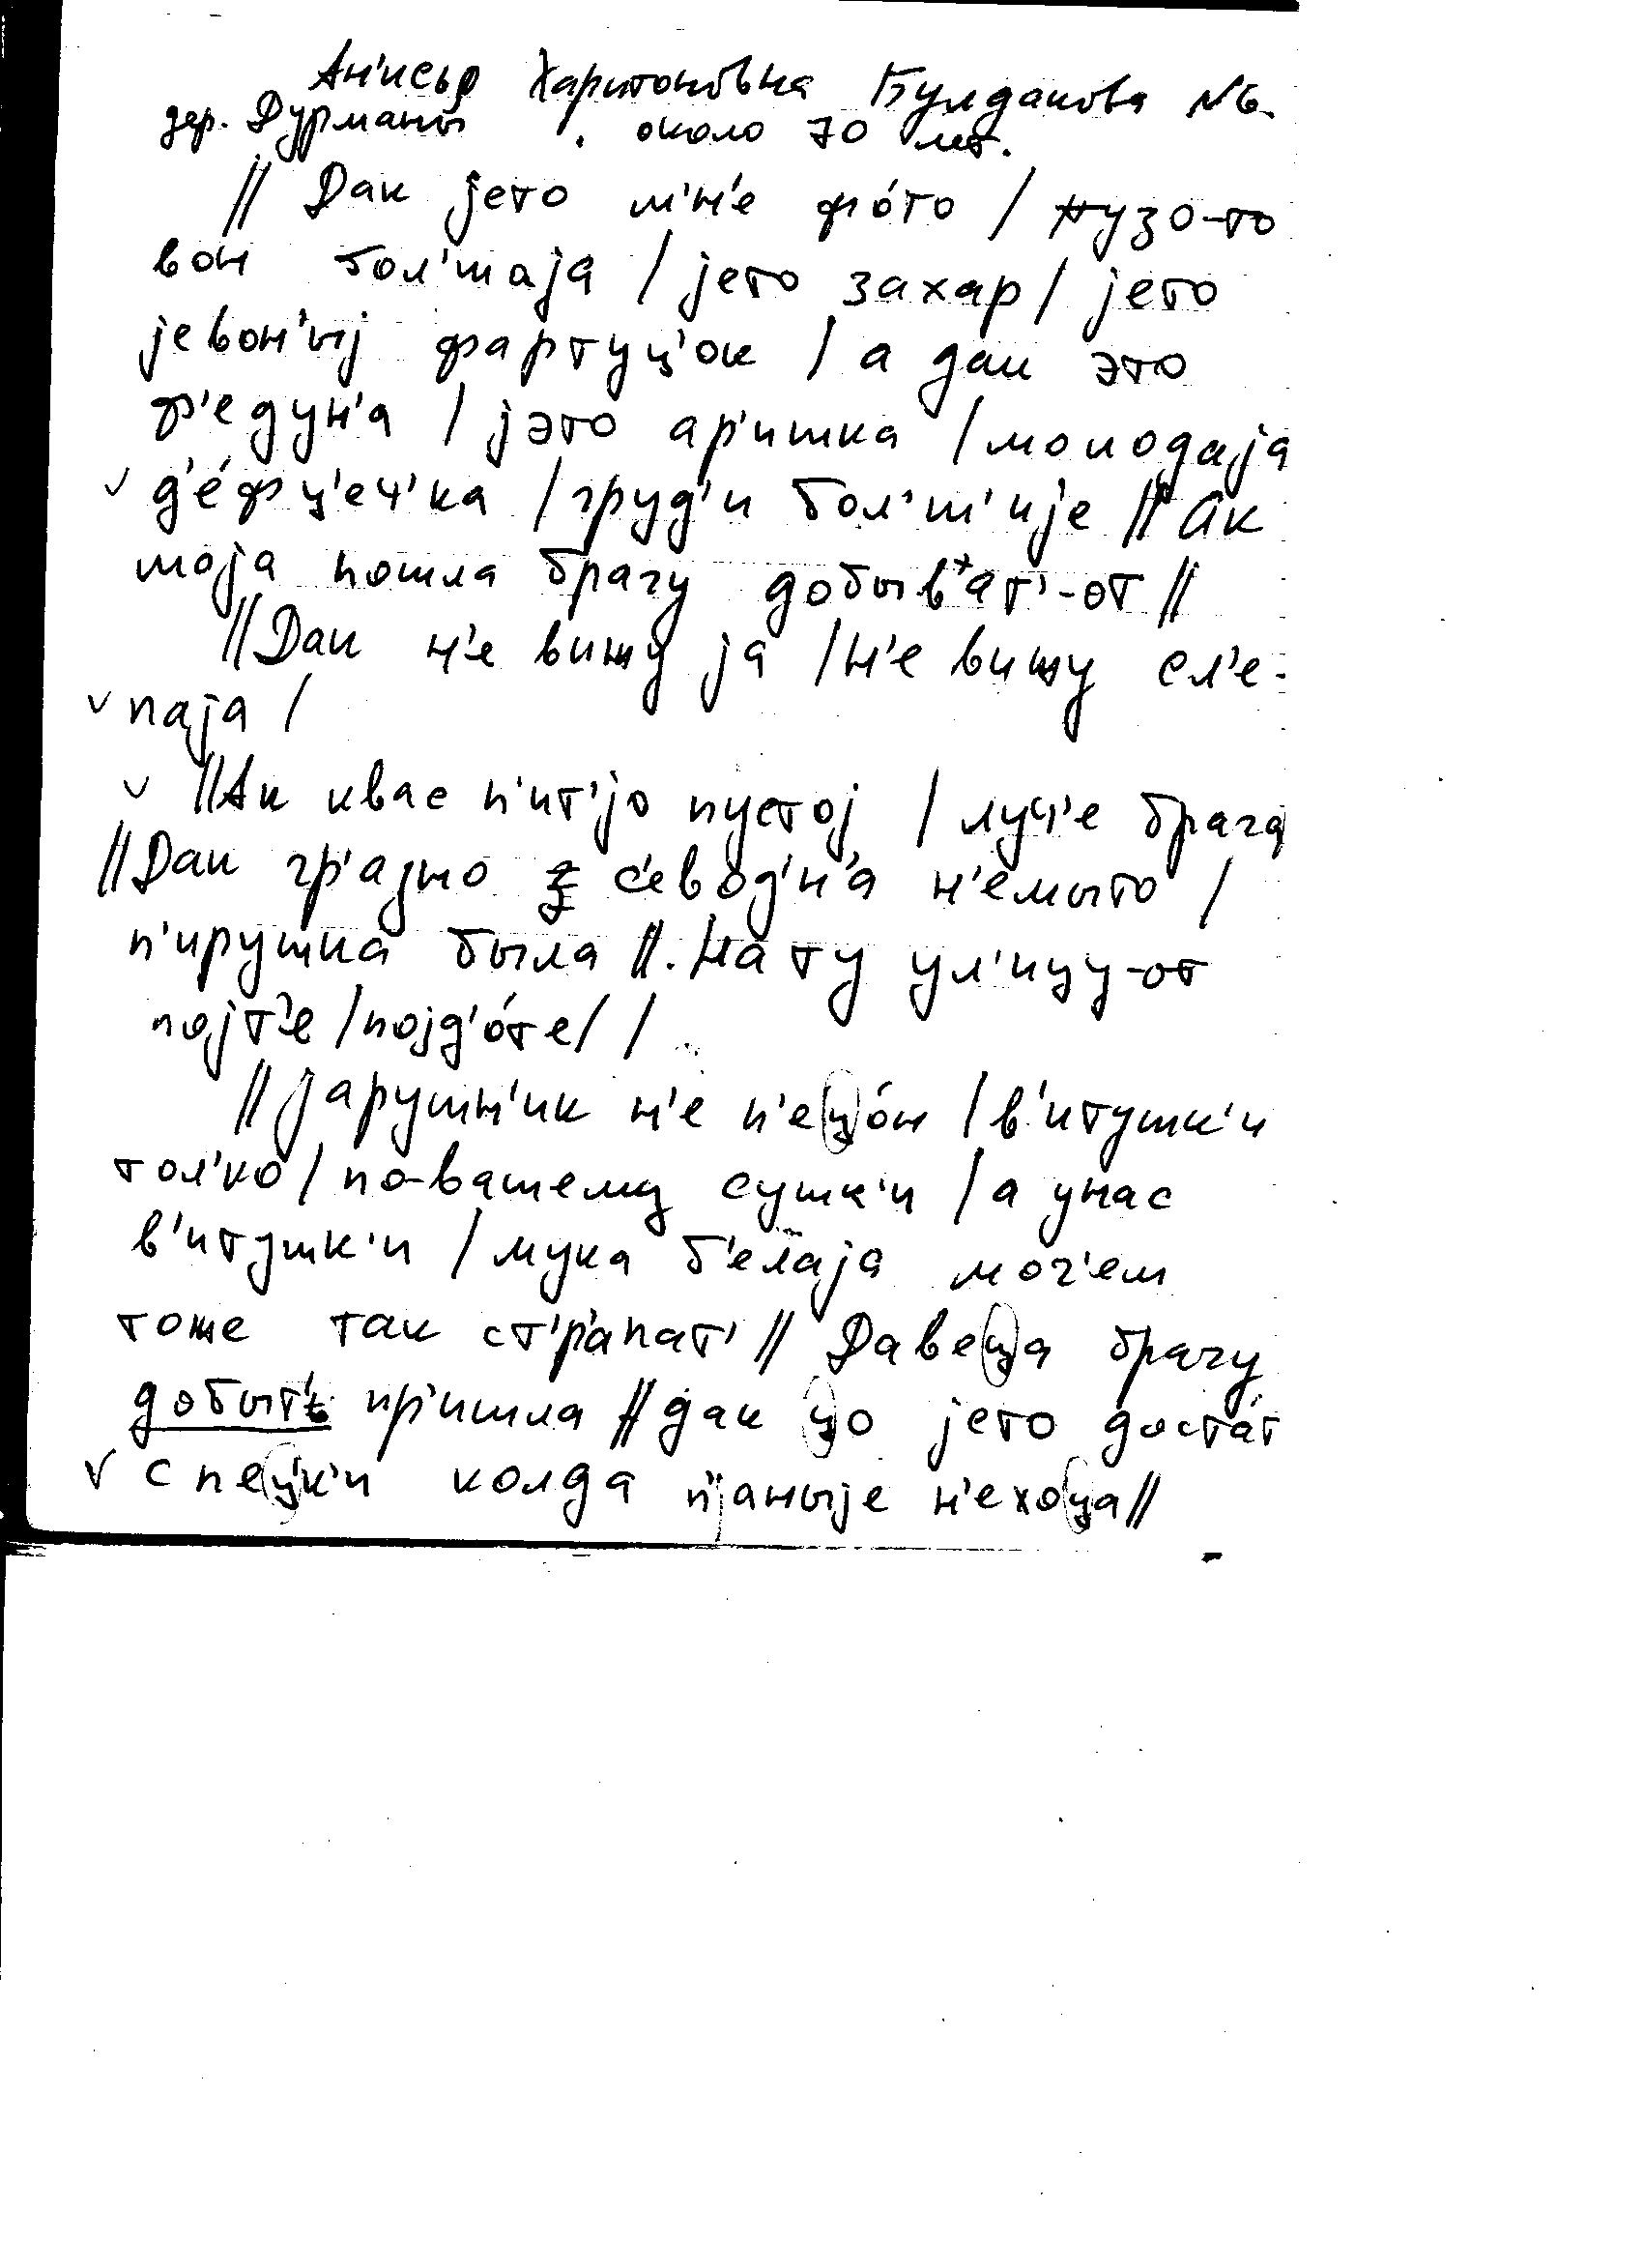 Анисья Харитоновна Булдакова №6.
дер. Дурманы . около 70 лет.
// Дак jето м'н'е фо́то / пузо-то
вон бол'шаjа / jето захар / jето
jевон'ыj фартуц'ок / а дак это
ф'едун'а / jэто ар'ишка / молодаjа
д'е́фц'еч'ка / груд'и бол'ш'иjе // Ак
моjа пошла брагу добыват'-от //
// Дак н'е вижу jа / н'е вижу сл'е-
паjа /
// Ак квас п'ит'jо пустоj / луч'е брага
// Дак гр'азно с'евод'н'а н'емыто /
п'ирушка была //. На ту ул'ицу-от
поjт'е / поjд'о́те / /
// Jарушн'ик н'е п'ецо́н / в'итушк'и
тол'ко / по-вашему сушк'и / а унас
в'итушк'и / мука б'елаjа мог'ем
тоже так ст'р'апат' // Давеца брагу
добыт' пр'ишла // дак цо jето доста́т
с пецк'и колда пjаныjе н'ехоца //